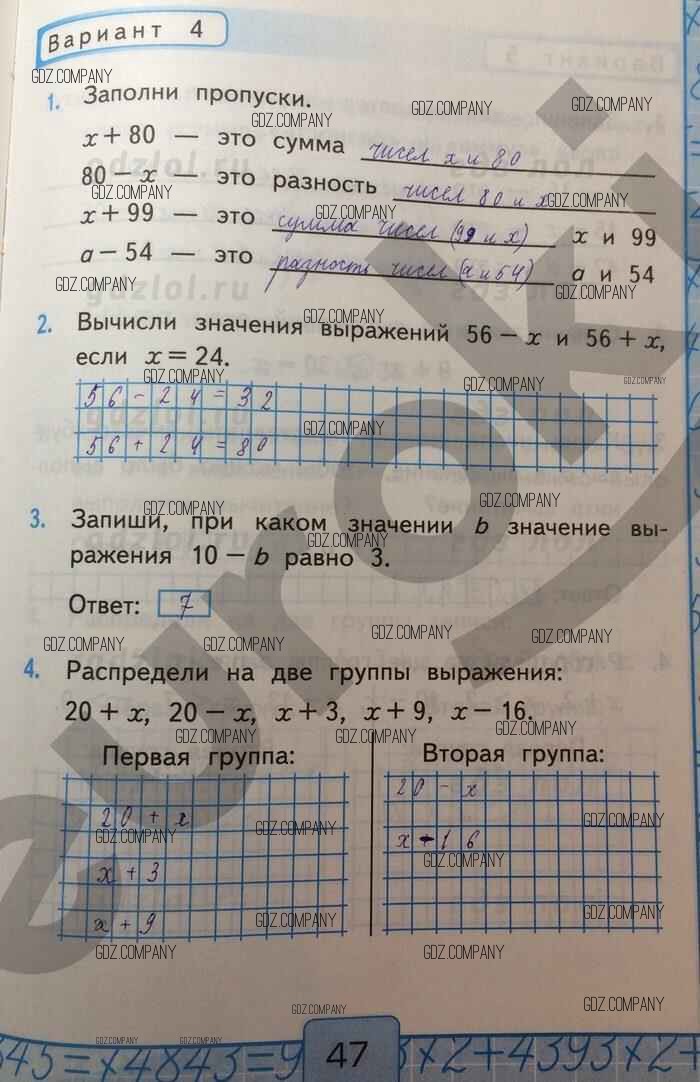 Вариант 4
1. Заполни пропуски.
x + 80 — это сумма чисел x и 80
80 − x — это разность чисел 80 и x
x + 99 — это сумма чисел (99 и x) x и 99
a − 54 — это разность чисел (a и 54) a и 54
2. Вычисли значения выражений 56 − x и 56 + x,
если x = 24.
56 - 24 = 32
56 + 24 = 80
3. Запиши, при каком значении b значение вы-
ражения 10 − b равно 3.
Ответ: 7
4. Распредели на две группы выражения:
20 + x, 20 − x, x + 3, x + 9, x − 16.
Первая группа:
20 + x
x + 3
x + 9
Вторая группа:
20 - x
x - 16
345=x4843=9
47
3x2+4393x2+
GDZ.COMPANY
gdzlol.ru
euroki